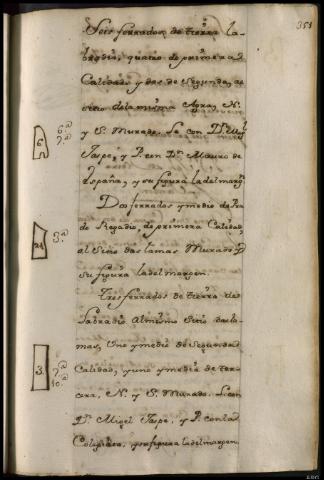 351
Seis ferrados de tierra la-
bradio, quatro de primera
Calidad y dos de Segunda, al
sitio dela misma Agra, N.
y S. Murado. L. con D.ⁿ
Taspe, y P. con D.ⁿ Mauro de
España, y su figura la del marg.ⁿ
6.
6.ª
7.ª
Dos ferrados y medio de Pra-
do Regadio, de primera Calidad
al Sitio das lamas Murado, y
Su figura la del margen.
2½
3.ª
Tres ferrados de tierra de
Labradio al mismo Sitio das la-
mas, Uno y medio de Segunda
Calidad, y uno y media de ter-
cera, N. y S. Murado. L. con
D.ⁿ Migel Taspe, y P. con la
Colegiata, y su figura la del margen.
3.
7.ª
10.ª